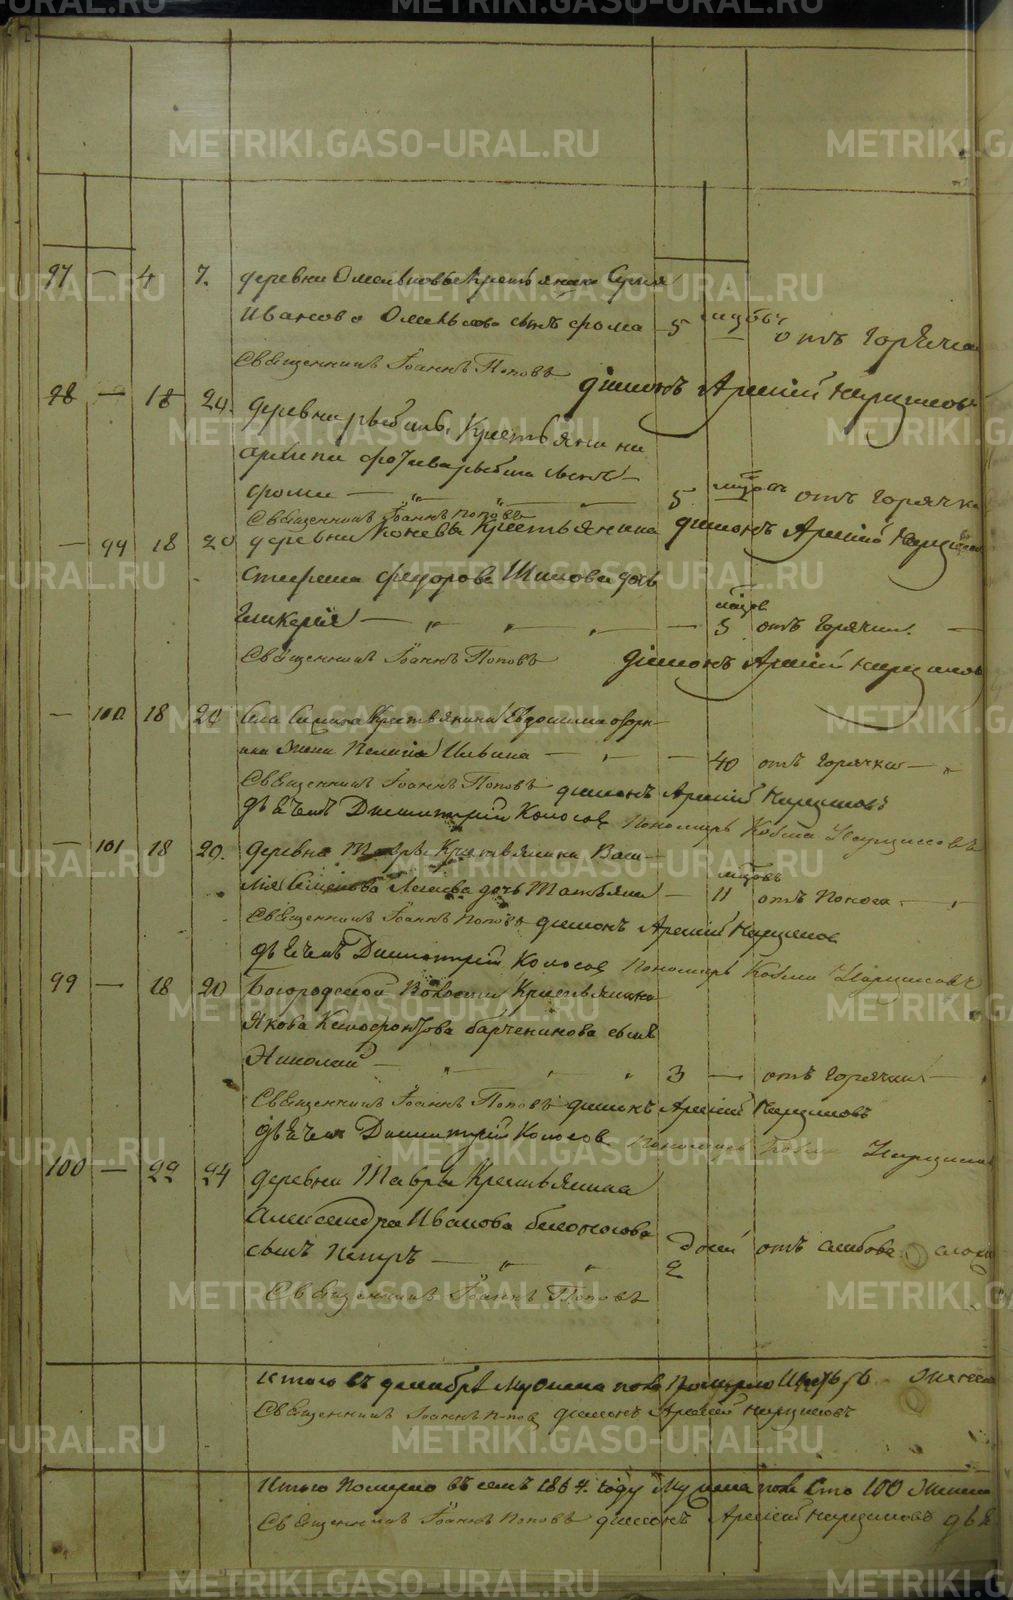 97 — 4 7. деревни Омельковы Крестьянина Сергея
Иванова Омелькова сынъ Фома — 5 мѣсяцовъ отъ Горячки
Священникъ Іоаннъ Поповъ дiаконъ Арсеній Нарциссовъ
98 — 18 20. деревни Крестьянина
Архипа сынъ
Фома — " " 5 мѣсяцовъ отъ Горячки
Священникъ Іоаннъ Поповъ
— 99 18 20 деревни Конева Крестьянина дiаконъ Арсеній Нарциссовъ
Федорова Шилова дочь
Гликерія — " " " — 3 мѣсяцов отъ Горячки —
Священникъ Іоаннъ Поповъ дiаконъ Арсеній Нарциссовъ
— 100 18 20 Села Крестьянина Евдокима
жена Пелагія Ильина — " — 40 отъ Горячки — "
Священникъ Іоаннъ Поповъ дiаконъ Арсеній Нарциссовъ
Дьячекъ Димитрій Колосов Пономарь Козьма Нарциссовъ
— 101 18 20. деревни Тавры Крестьянина Васи-
лія Семенова дочь Татьяна — 11 мѣсяцовъ отъ Поноса — "
Священникъ Іоаннъ Поповъ дiаконъ Арсеній Нарциссов
Дьячекъ Димитрій Колосов Пономарь Козьма Нарциссовъ
99 — 18 20 Богородской Волости Крестьянина
Якова Ксенофонтова сынъ
Николай — " " " 3 — отъ Горячки —
Священникъ Іоаннъ Поповъ дiаконъ Арсеній Нарциссовъ
Дьячекъ Димитрій Колосов Пономарь Козьма Нарциссов
100 — 22 24 деревни Тавры Крестьянина
Александра Иванова Белоногова
сынъ Петръ — " " 2 дней отъ слабова
Священникъ Іоаннъ Поповъ
Итого въ декабрѣ Мужеска пола Померло Шесть 6
Священникъ Іоаннъ Попов дiаконъ Арсеній Нарциссовъ
Итого Померло въ семъ 1864. году Мужеска пола Сто 100 Женска
Священникъ Іоаннъ Поповъ дiаконъ Арсеній Нарциссовъ
METRIKI.GASO-URAL.RU